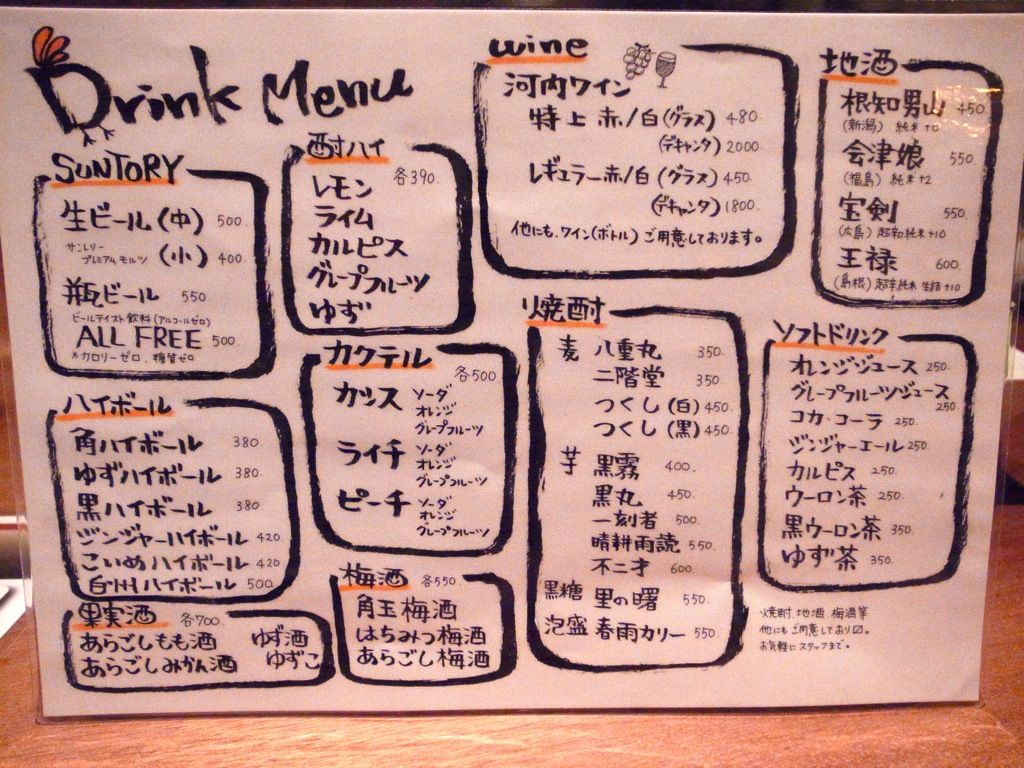 Drink Menu
SUNTORY
生ビール(中) 500.
サントリー
プレミアムモルツ (小) 400.
瓶ビール 550
ビールテイスト飲料(アルコールゼロ)
ALL FREE 500.
*カロリーゼロ、糖質ゼロ
ハイボール
角ハイボール 380.
ゆずハイボール 380.
黒ハイボール 380
ジンジャーハイボール 420
こいめハイボール 420
台州ハイボール 500
果実酒 各700.
あらごしもも酒 ゆず酒
あらごしみかん酒 ゆずこ
酎ハイ 各390.
レモン
ライム
カルピス
グレープフルーツ
ゆず
カクテル 各500
カシス ソーダ
オレンジ
グレープフルーツ
ライチ ソーダ
オレンジ
グレープフルーツ
ピーチ ソーダ
オレンジ
グレープフルーツ
梅酒 各550.
角玉梅酒
はちみつ梅酒
あらごし梅酒
wine
河内ワイン
特上 赤/白(グラス) 480
(デキャンタ) 2000.
レギュラー赤/白(グラス) 450.
(デキャンタ) 1800.
他にも、ワイン(ボトル)ご用意しております。
焼酎
麦 八重丸 350.
二階堂 350.
つくし(白) 450
つくし(黒) 450.
芋 黒霧 400.
黒丸 450.
一刻者 500.
晴耕雨読 550.
不二才 600.
黒糖 里の曙 550.
泡盛 春雨カリー 550
地酒
根知男山 450
(新潟) 純米+0
会津娘 550.
(福島) 純米+2
宝剣 550.
(広島) 超辛純米+10
王禄 600
(島根) 超辛純米 生詰+10
ソフトドリンク
オレンジジュース 250.
グレープフルーツジュース 250
コカ・コーラ 250.
ジンジャーエール 250.
カルピス 250.
ウーロン茶 250.
黒ウーロン茶 350.
ゆず茶 350.
焼酎、地酒、梅酒等
他にもご用意しており〼。
お気軽にスタッフまで。